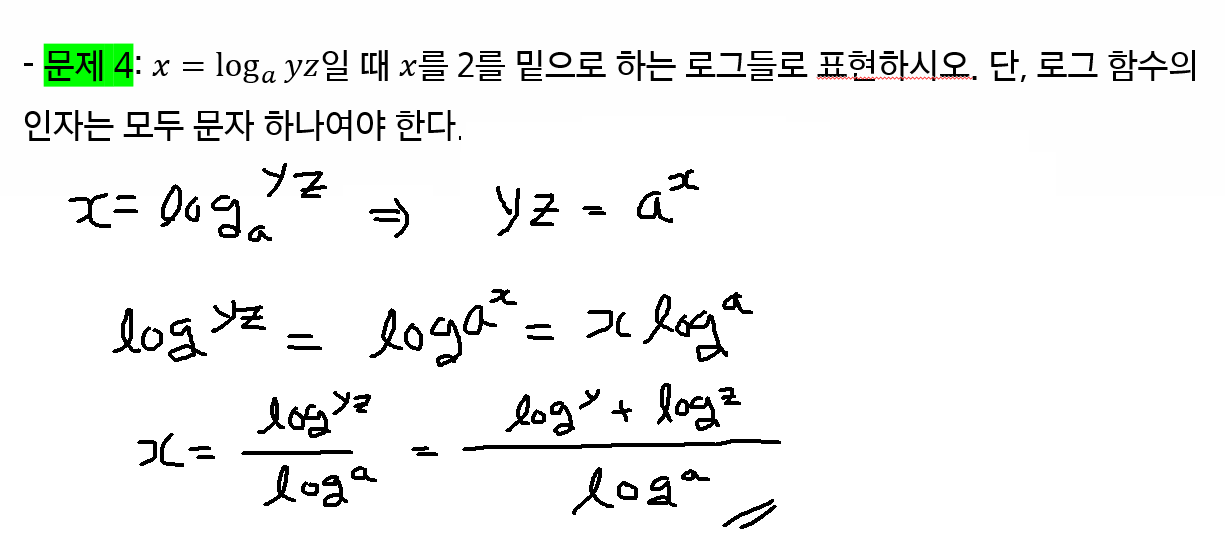 - 문제 4: x = logₐ yz일 때 x를 2를 밑으로 하는 로그들로 표현하시오. 단, 로그 함수의
인자는 모두 문자 하나여야 한다.
x = logₐ^yz ⇒ yz = a^x
log^yz = log a^x = x log^a
x = log^yz / log^a = (log^y + log^z) / log^a